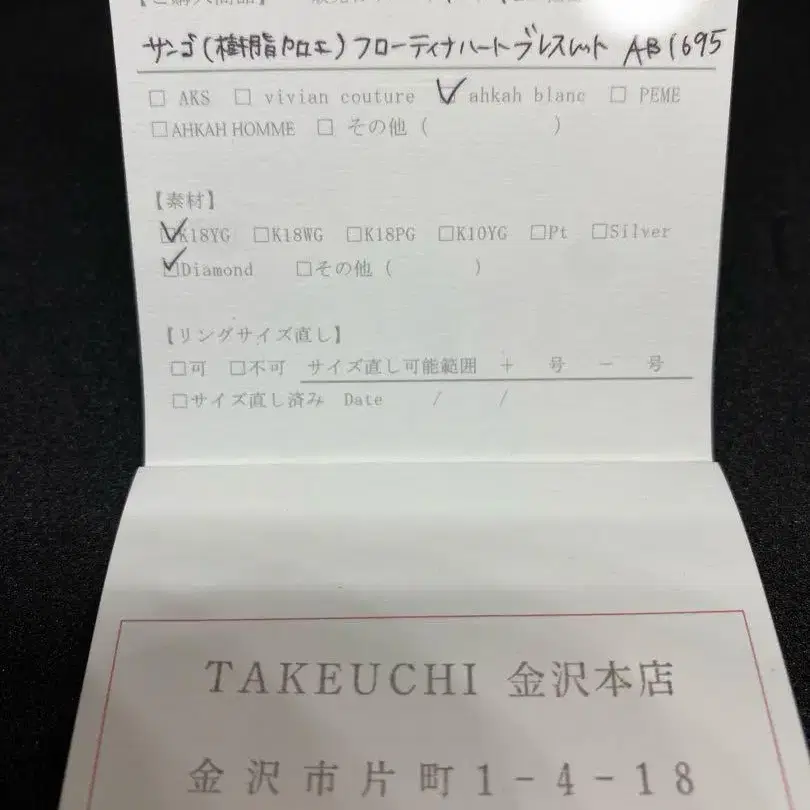 【ご購入商品】
サンゴ(樹脂加工)フローティナハートブレスレット AB1695
□ AKS □ vivian couture ☑ ahkah blanc □ PEME
□AHKAH HOMME □ その他 ( )
【素材】
☑K18YG □K18WG □K18PG □K10YG □Pt □Silver
☑Diamond □その他 ( )
【リングサイズ直し】
□可 □不可 サイズ直し可能範囲 + 号 − 号
□サイズ直し済み Date / /
TAKEUCHI 金沢本店
金沢市片町1-4-18